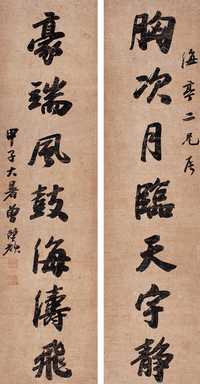 海亭二兄屬
胸次月臨天宇静
豪端風鼓海濤飛
甲子大暑曾熙